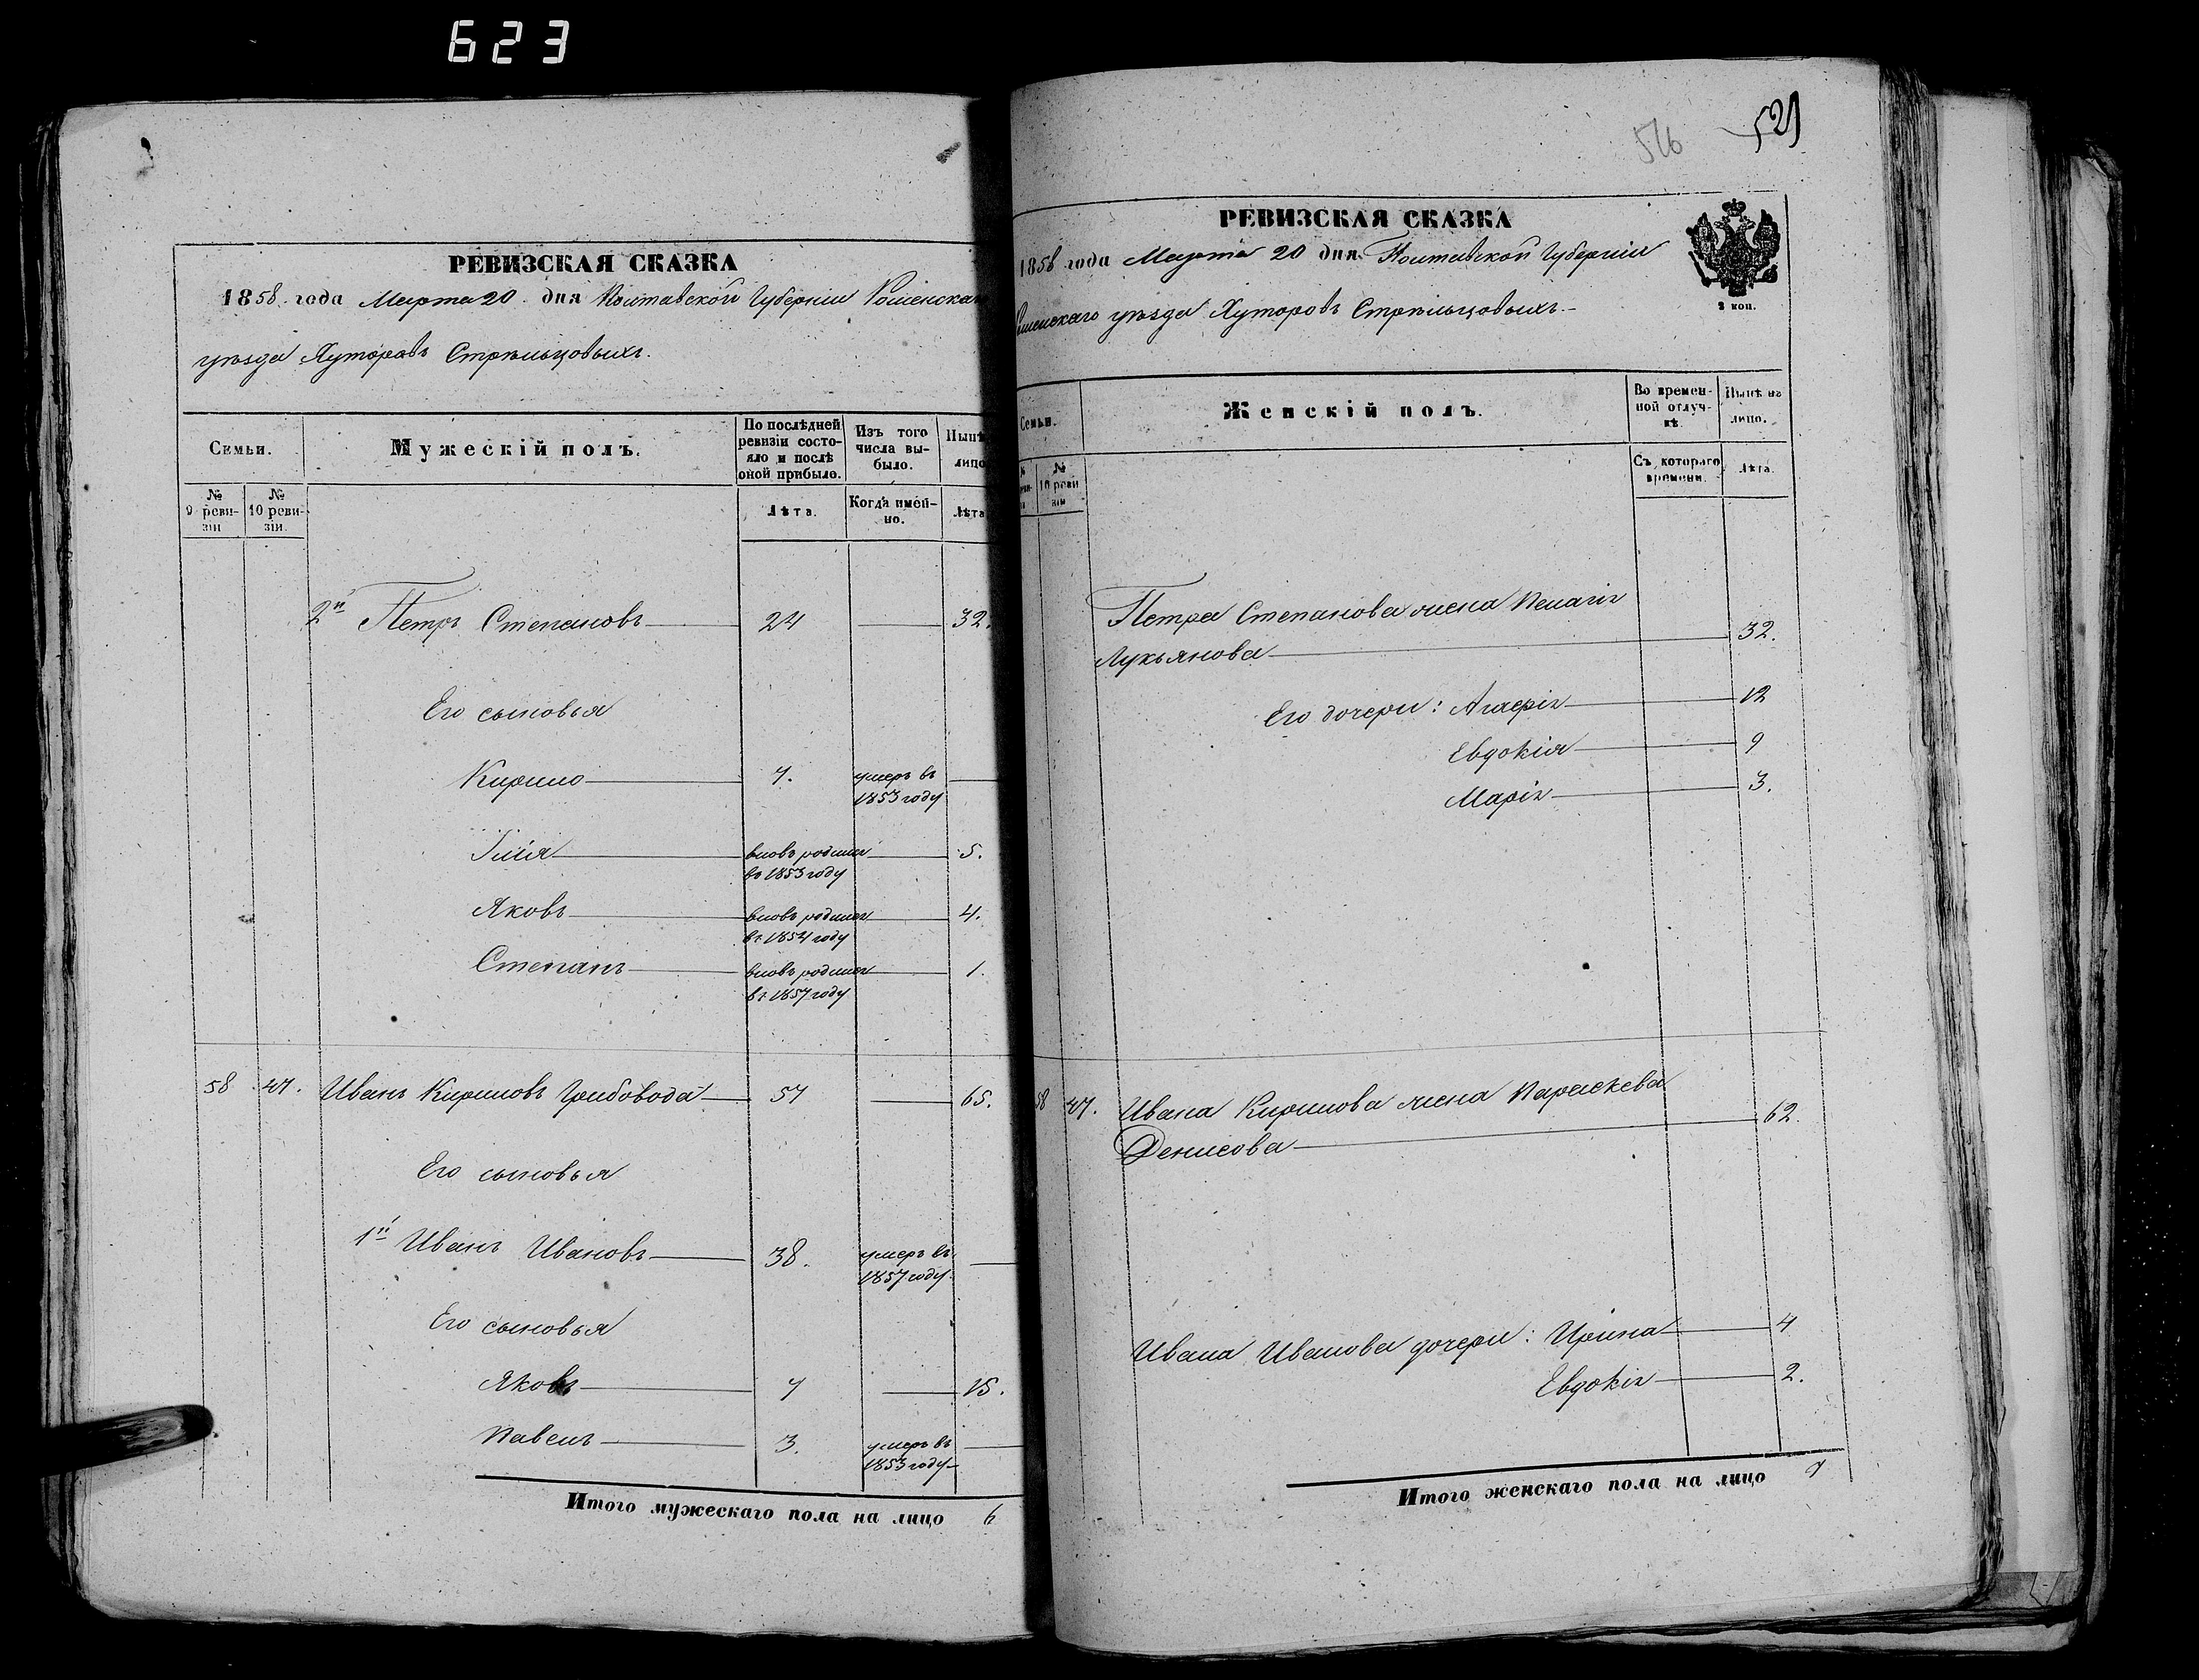 623
РЕВИЗСКАЯ СКАЗКА
1858 года Марта 20 дня Полтавской Губерніи Роменскаго
уѣзда Хуторовъ Стрѣльцовыхъ.
Семьи.
Мужескій полъ.
По послѣдней ревизіи состояло и послѣ оной прибыло.
Изъ того числа выбыло.
Нынѣ
лицо
№ 9 ревизіи
№ 10 ревизіи.
Лѣта.
Когда имен-но.
Лѣта
2й Петръ Степановъ 24 — 32.
Его сыновья
Кирило 7. умеръ въ 1853 году —
Илія вновь родился въ 1853 году — 5.
Яковъ вновь родился въ 1854 году — 4.
Степанъ вновь родился въ 1857 году — 1.
58 47. Иванъ Кириловъ Грибовода 57 — 65.
Его сыновья
1й Иванъ Ивановъ 38. умеръ въ 1857 году. —
Его сыновья
Яковъ 7 — 15.
Павелъ 3. умеръ въ 1853 году —
Итого мужескаго пола на лицо 6
516 521
РЕВИЗСКАЯ СКАЗКА
1858 года Марта 20 дня Полтавской Губерніи
Роменскаго уѣзда Хуторовъ Стрѣльцовыхъ.
2 коп.
Семьи.
Женскій полъ.
Во времен-ной отлуч-кѣ.
Нынѣ на лицо.
№ 10 реви зіи
Съ котораго времени.
Лѣта.
Петра Степанова жена Пелагія
Лукьянова 32.
Его дочери: Агафія 12
Евдокія 9
Марія 3.
58 47. Ивана Кирилова жена Параскева
Денисова 62.
Ивана Иванова дочери: Ирина 4
Евдокія 2.
Итого женскаго пола на лицо 7